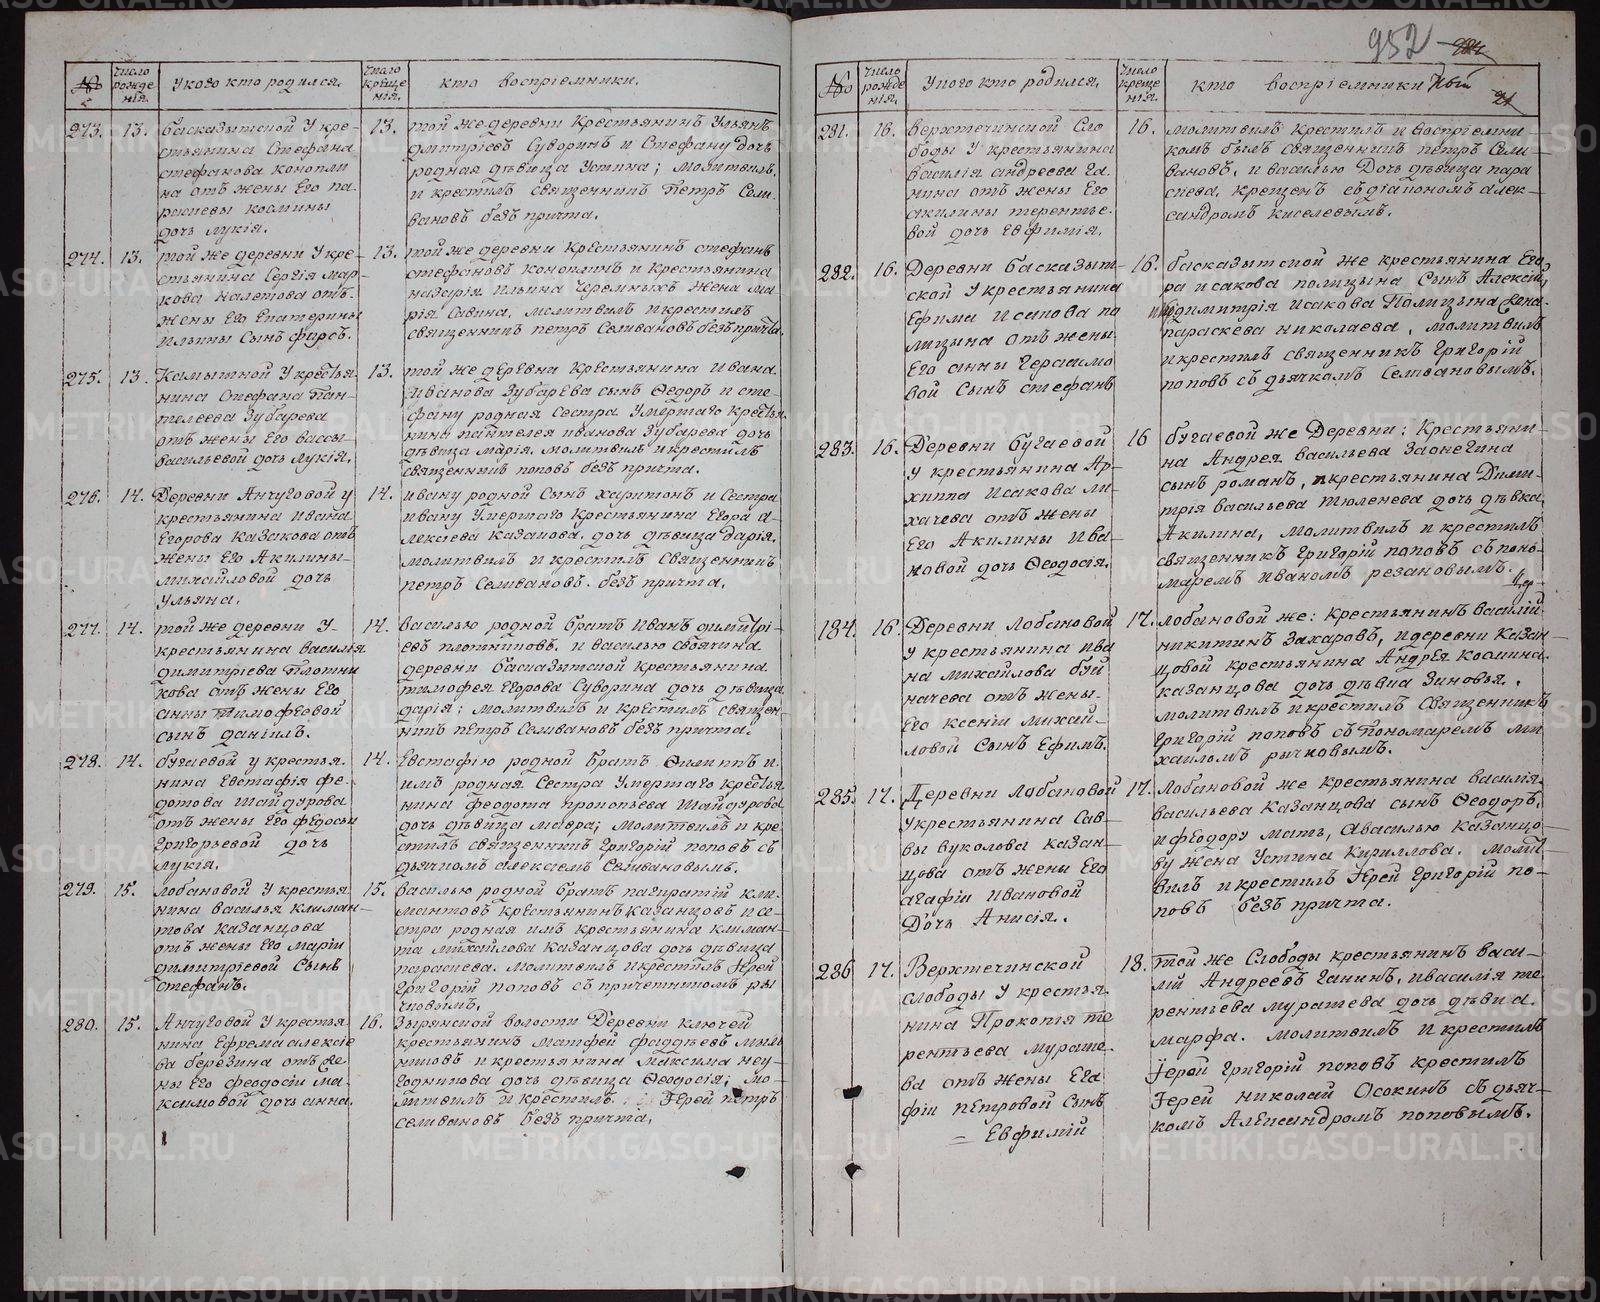 952
№
число рожде нія.
У кого кто родился.
число креще нія.
кто воспріемники.
273.
13.
басказытской У кре-
стьянина Стефана
стефанова конопли
на отъ жены Его па-
раскевы космины
дочь лукія.
13.
той же деревни Крестьянинъ Ульянъ
дмитріевъ Суворинъ и Стефану дочь
родная дѣвица Устина; молитвилъ
и крестилъ священникъ Петръ Сели-
вановъ безъ причта.
274.
13.
той же деревни У кре-
стьянина Сергія мар-
кова налетова отъ
жены Его Екатерины
Ильины Сынъ фирсъ.
13.
той же деревни Крестьянинъ стефанъ
стефановъ коноплинъ и крестьянина
назарія ильина Черемныхъ жена ма
рія Савина, молитвилъ и крестилъ
священникъ петръ Селивановъ безъ причта.
275.
13.
Камытной У крестья-
нина Стефана Пан-
телеева Зубарева
отъ жены Его вассы
васильевой дочь лукія.
13.
той же деревни Крестьянина Ивана
Иванова Зубарева сынъ Ѳедоръ и сте-
фану родная Сестра Умершаго Крестья
нина пантелея иванова Зубарева дочь
дѣвица марія. молитвилъ и крестилъ
священникъ поповъ безъ причта.
276.
14.
Деревни Анчуговой у
крестьянина ивана
Егорова Казакова отъ
жены Его Акилины
михайловой дочь
Ульяна.
14.
ивану родной Сынъ харитонъ и Сестра
ивану Умершаго Крестьянина Егора а-
лексіева Казакова. дочь дѣвица дарія.
молитвилъ и крестилъ Священникъ
петръ Селивановъ. безъ причта.
277.
14.
той же деревни У-
крестьянина василія
димитріева Плотни
кова отъ жены Его
анны тимофеевой
сынъ даніилъ.
14.
василью родной братъ иванъ димитрі-
евъ плотниковъ. и василью своячина
деревни басказытской Крестьянина
тимофея Егорова Суворина дочь дѣвица
дарія: молитвилъ и крестилъ священ-
никъ петръ Селивановъ безъ причта.
278.
14.
бугаевой у крестья.
нина Евстафія фе-
дотова Шайдурова
отъ жены Его федосьи
Григорьевой дочь
лукія.
14.
Евстафію родной братъ Филиппъ и
имъ родная Сестра Умершаго Крестья
нина феодота прокопьева Шайдурова
дочь дѣвица мавра; молитвилъ и кре
стилъ священникъ Григорій поповъ съ
дьячкомъ Алексіемъ Селивановымъ.
279.
15.
лобановой У крестья
нина василья климан-
това Казанцова
отъ жены Его маріи
димитріевой Сынъ
стефанъ.
15.
василью родной братъ панкратій кли-
мантовъ крестьянинъ казанцовъ и се-
стра родная имъ крестьянина климан-
та михайлова казанцова дочь дѣвица
параскева. молитвилъ и крестилъ Іерей
Григорій поповъ съ причетникомъ ры
чковымъ.
280.
15.
Анчуговой У крестья
нина Ефрема алексіе
ва березина отъ же
ны Его феодосіи ма-
ксимовой дочь анна.
16.
Зырянской волости Деревни ключей
крестьянинъ матфей фаддѣевъ мыль
никовъ и крестьянина Максима неу-
годникова дочь дѣвица Ѳеодосія; мо-
литвилъ и крестилъ Іерей петръ
селивановъ безъ причта.
№
число рожде нія.
У кого кто родился.
Число креще нія.
кто воспріемники
281.
16.
верхтечинской Сло
боды У крестьянина
василія андреева Га-
нина отъ жены Его
акилины терентье-
вой дочь Евфимія.
16.
молитвилъ крестилъ и воспріемни-
комъ былъ священникъ петръ Сели-
вановъ, и василью Дочь дѣвица пара
скева, крещенъ съ діакономъ алек-
сандромъ киселевымъ.
282.
16.
Деревни басказыт-
ской У крестьянина
Ефима Исакова па
лицына отъ жены
Его анны Герасимо
вой Сынъ стефанъ
16.
басказытской же крестьянина Его
ра исакова полицына Сынъ Алексій,
и димитрія исакова Полицына жена
параскева николаева, молитвилъ
и крестилъ священникъ Григорій
поповъ съ дьячкомъ Селивановымъ.
283.
16.
Деревни бугаевой
у крестьянина Ар-
хипа Исакова ли-
хачева отъ жены
Его Акилины Ива-
новой дочь Ѳеодосія.
16
бугаевой же Деревни: Крестьяни-
на Андрея васильева Заонегина
сынъ романъ, и крестьянина Дими-
трія васильева тюленева дочь дѣвка
Акилина, молитвилъ и крестилъ
священникъ Григорій поповъ съ поно-
маремъ иваномъ резановымъ.
184.
16.
Деревни Лобановой
у крестьянина ива
на михайлова буй
начева отъ жены
Его ксеніи михай-
ловой Сынъ Ефимъ.
17.
лобановой же: крестьянинъ василій
никитинъ Захаровъ, и деревни Казан-
цовой крестьянина Андрея космина
казанцова дочь дѣвица Зиновья.
молитвилъ и крестилъ Священникъ
Григорій поповъ съ пономаремъ ми
хаиломъ рычковымъ.
285.
17.
Деревни лобановой
У крестьянина Сав-
вы вуколова казан-
цова отъ жены Его
агафіи ивановой
Дочь Анисія.
17.
лобановой же крестьянина василія
васильева казанцова сынъ Ѳеодоръ,
и феодору мать, а василью казанцо-
ву жена Устина Кириллова. моли-
вилъ и крестилъ Іерей Григорій по-
повъ безъ причта.
286
17.
Верхтечинской
слободы У крестья-
нина Прокопія те
рентьева мураше-
ва отъ жены Ега
фіи петровой Сынъ
Евфимій
18.
той же Слободы крестьянинъ васи-
лій Андреевъ Ганинъ, и василія те-
рентьева мурашева дочь дѣвица
марфа. молитвилъ и крестилъ
Іерей Григорій поповъ крестилъ
Іерей николай Осокинъ съ дьяч-
комъ Александромъ поповымъ.
METRIKI.GASO-URAL.RU